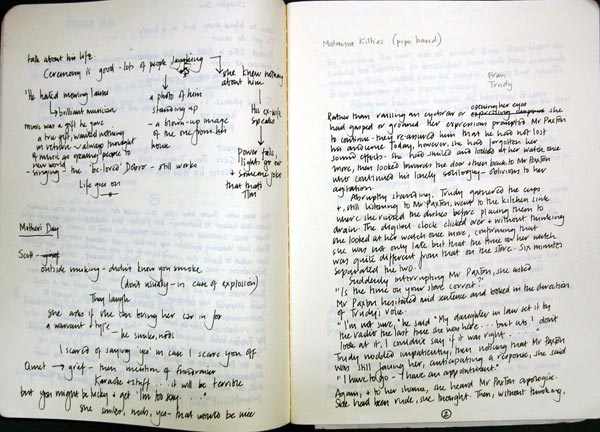 talk about his life
Ceremony is good - lots of people laughing
she knew nothing about him
"He hated mowing lawns
brilliant musician
music was a gift he gave
a true gift, wanted nothing
in return - always thought
of music as opening people to
new world
singing the 'beloved' Danor - still works
Life goes on
a photo of him
standing up
- a blown-up image
of the one from his
house
His ex-wife
speaks
Power fails,
lights go out
+ someone joke
that that's
Tim
Mother's Day
Scott
outside smoking - didn't know you smoke
(don't usually - in case of explosion)
They laugh
she asks if she can bring her car in for
a warrant + type
he smiles, nods
I scared of saying 'yes' in case I scare you off
Quiet → grief - then mention of fundraiser
Karaoke + stuff... it will be terrible
but you might be lucky + get 'I'm too sexy...'
she smiled, nods, yea - that would be nice
Mataura Kilties (pipe band)
Fran
Trudy
opening her eyes
Rather than raising an eyebrow or she
had gasped or groaned her expression prompted Mr Paxton
to continue - they reassured him that he had not lost
his audience. Today, however, she had forgotten her
sound effects. She had smiled and looked at her watch once
more, then looked towards the door + then back to Mr Paxton
who continued his lonely soliloquy - oblivious to her
agitation.
Abruptly standing, Trudy gathered the cups
+, still listening to Mr Paxton, went to the kitchen sink
where she rinsed the dishes before placing them to
drain. The digital clock clicked over + without thinking
she looked at her watch once more, confirming that
she was not only late but that the time on her watch
was quite different from that on the stove. Six minutes
separated the two.
Suddenly interrupting Mr Paxton, she asked
"Is the time on your stove correct?"
Mr Paxton hesitated mid sentence and looked in the direction
of Trudy's voice.
"I'm not sure," he said. "My daughter in law set it by
the radio the last time she was here... but as I don't
look at it, I couldn't say if it was right..."
Trudy nodded impatiently, then noticing that Mr Paxton
was still facing her, anticipating a response, she said
"I have to go - I have an appointment."
Again, + to her shame, she heard Mr Paxton apologise.
She had been rude, she thought. Then, without thinking,
2